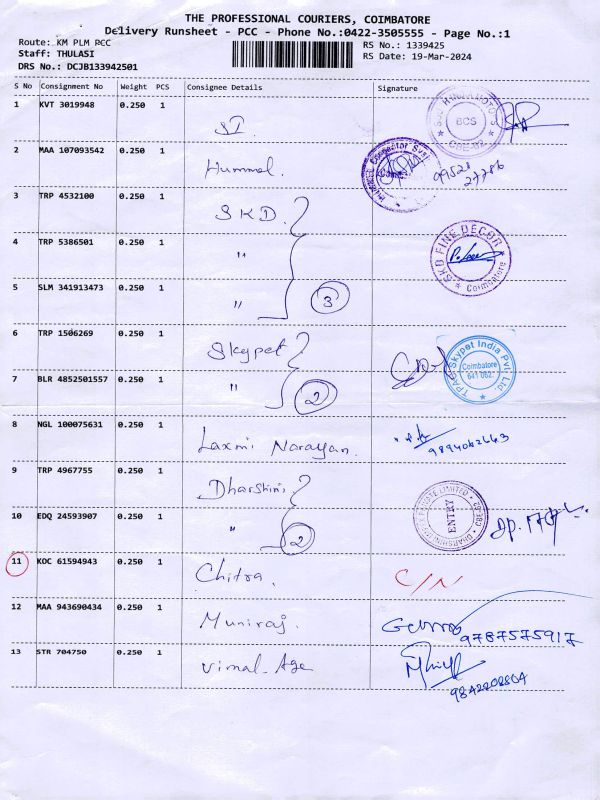 THE PROFESSIONAL COURIERS, COIMBATORE
Delivery Runsheet - PCC - Phone No.:0422-3505555 - Page No.:1
Route: KM PLM PCC
RS No.: 1339425
Staff: THULASI
RS Date: 19-Mar-2024
DRS No.: DCJB133942501
S No Consignment No Weight PCS Consignee Details Signature
1 KVT 3019948 0.250 1 SI. BCS
2 MAA 107093542 0.250 1 Hummel. 99521 27786
3 TRP 4532100 0.250 1 SKD.
4 TRP 5386501 0.250 1 " SKD FINE DECOR Coimbatore
5 SLM 341913473 0.250 1 " 3
6 TRP 1506269 0.250 1 Skypet Skypet India Pvt. Ltd. Coimbatore 641 062.
7 BLR 4852501557 0.250 1 " 2
8 NGL 100075631 0.250 1 Laxmi Narayan.
9 TRP 4967755 0.250 1 Dharshini PRIVATE LIMITED ENTRY
10 EDQ 24593907 0.250 1 " 2
11 KOC 61594943 0.250 1 Chitra. C/N
12 MAA 943690434 0.250 1 Muniraj. 9787575917
13 STR 704750 0.250 1 Vimal Age 9842208804